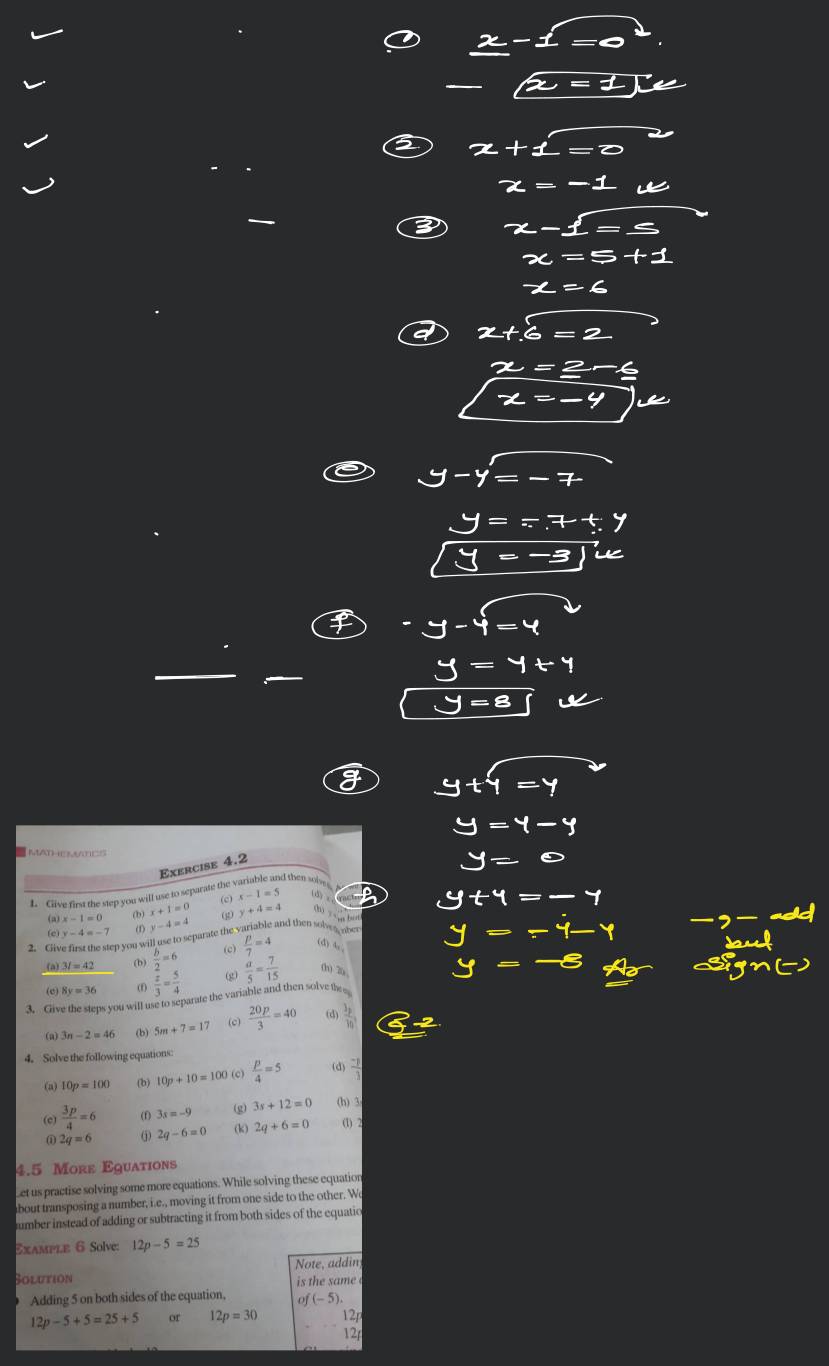 ① x - 1 = 0
x = 1
② x + 1 = 0
x = -1
③ x - 1 = 5
x = 5 + 1
x = 6
ⓓ x + 6 = 2
x = 2 - 6
x = -4
ⓔ y - 4 = -7
y = -7 + 4
y = -3
ⓕ y - 4 = 4
y = 4 + 4
y = 8
ⓖ y + 4 = 4
y = 4 - 4
y = 0
ⓗ y + 4 = -4
y = -4 - 4
y = -8 As
-, - add
but
Sign (-)
Q-2
MATHEMATICS
EXERCISE 4.2
1. Give first the step you will use to separate the variable and then solve
(a) x – 1 = 0 (b) x + 1 = 0 (c) x – 1 = 5 (d) x
(e) y – 4 = – 7 (f) y – 4 = 4 (g) y + 4 = 4 (h) y
2. Give first the step you will use to separate the variable and then solve
(a) 3l = 42 (b) b/2 = 6 (c) p/7 = 4 (d) 4x
(e) 8y = 36 (f) z/3 = 5/4 (g) a/5 = 7/15 (h) 20
3. Give the steps you will use to separate the variable and then solve the
(a) 3n – 2 = 46 (b) 5m + 7 = 17 (c) 20p/3 = 40 (d) 3p/10
4. Solve the following equations:
(a) 10p = 100 (b) 10p + 10 = 100 (c) p/4 = 5 (d) –p/3
(e) 3p/4 = 6 (f) 3s = –9 (g) 3s + 12 = 0 (h) 3s
(i) 2q = 6 (j) 2q – 6 = 0 (k) 2q + 6 = 0 (l) 2
4.5 MORE EQUATIONS
Let us practise solving some more equations. While solving these equation
about transposing a number, i.e., moving it from one side to the other. We
number instead of adding or subtracting it from both sides of the equatio
EXAMPLE 6 Solve: 12p – 5 = 25
SOLUTION
Adding 5 on both sides of the equation,
12p – 5 + 5 = 25 + 5 or 12p = 30
Note, adding
is the same
of (– 5).
12p
12p